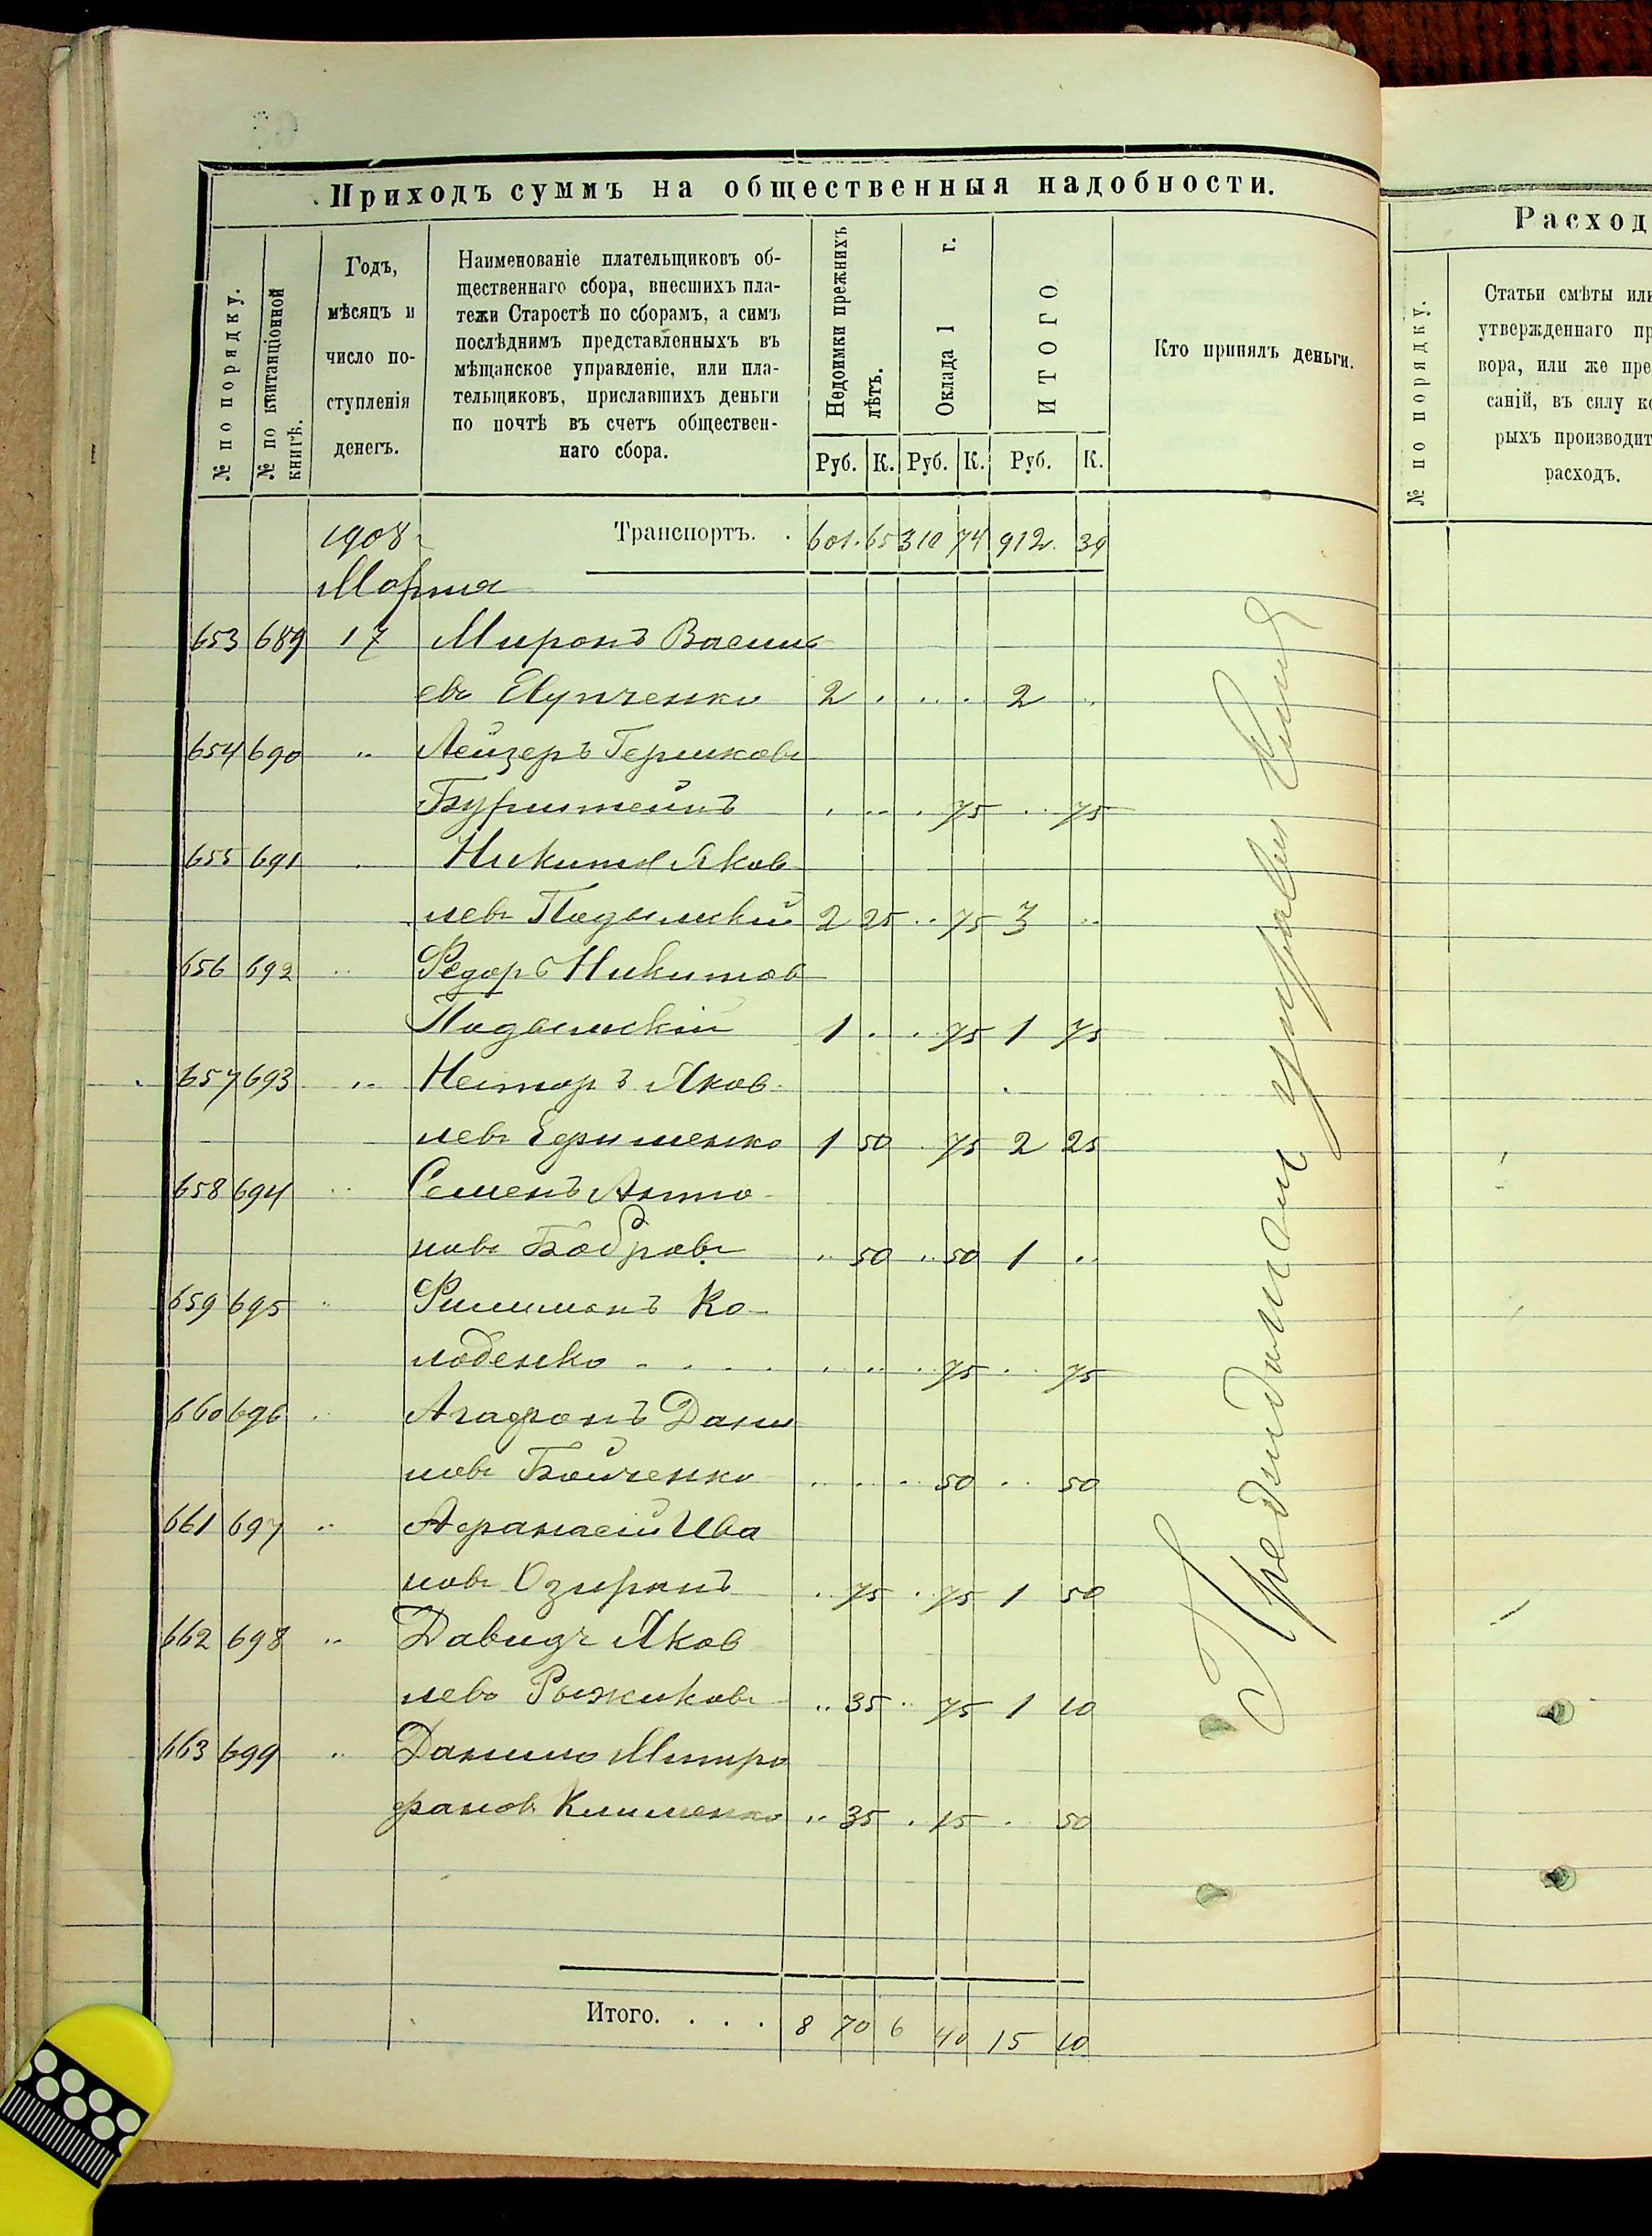 Приходъ суммъ на общественныя надобности.
№ по порядку.
№ по квитанціонной книгѣ.
Годъ, мѣсяцъ и число поступленія денегъ.
Наименованіе плательщиковъ об-
щественнаго сбора, внесшихъ пла-
тежи Старостѣ по сборамъ, а симъ
послѣднимъ представленныхъ въ
мѣщанское управленіе, или пла-
тельщиковъ, приславшихъ деньги
по почтѣ въ счетъ обществен-
наго сбора.
Недоимки прежнихъ лѣтъ.
Оклада 1 г.
ИТОГО
Кто принялъ деньги.
Руб. К. Руб. К. Руб. К.
1908 Транспортъ. . 601 65 310 74 912 39
Марта
653 689 17 Миронъ Василь
евъ
2 . .. . 2 ..
654 690 .. Лейзеръ Гершковъ
Бурштейнъ . .. . 75 .. 75
655 691 . Никита Яков
левъ 2 25 .. 75 3 ..
656 692 .. Федоръ Никитов
1 . . 75 1 75
657 693 .. Несторъ Яков
левъ Ефименко 1 50 . 75 2 25
658 694 .. Семенъ Анто
новъ Бобровъ .. 50 .. 50 1 ..
659 695 .. Филимонъ Ко-
лоденко . . . . . .. . 75 .. 75
660 696 . Агафонъ Дани
ловъ Бойченко .. . . 50 .. 50
661 697 .. Афанасій Ива
новъ . 75 . 75 1 50
662 698 .. Давидъ Яков
левъ Рыжиковъ .. 35 .. 75 1 10
663 699 .. Данило Митро
фановъ Клименко .. 35 . 15 . 50
Итого. . . . 8 70 6 40 15 10
управы
Расход
№ по порядку.
Статьи смѣты или
утвержденнаго пр
вора, или же пре
саній, въ силу ко
рыхъ производит
расходъ.